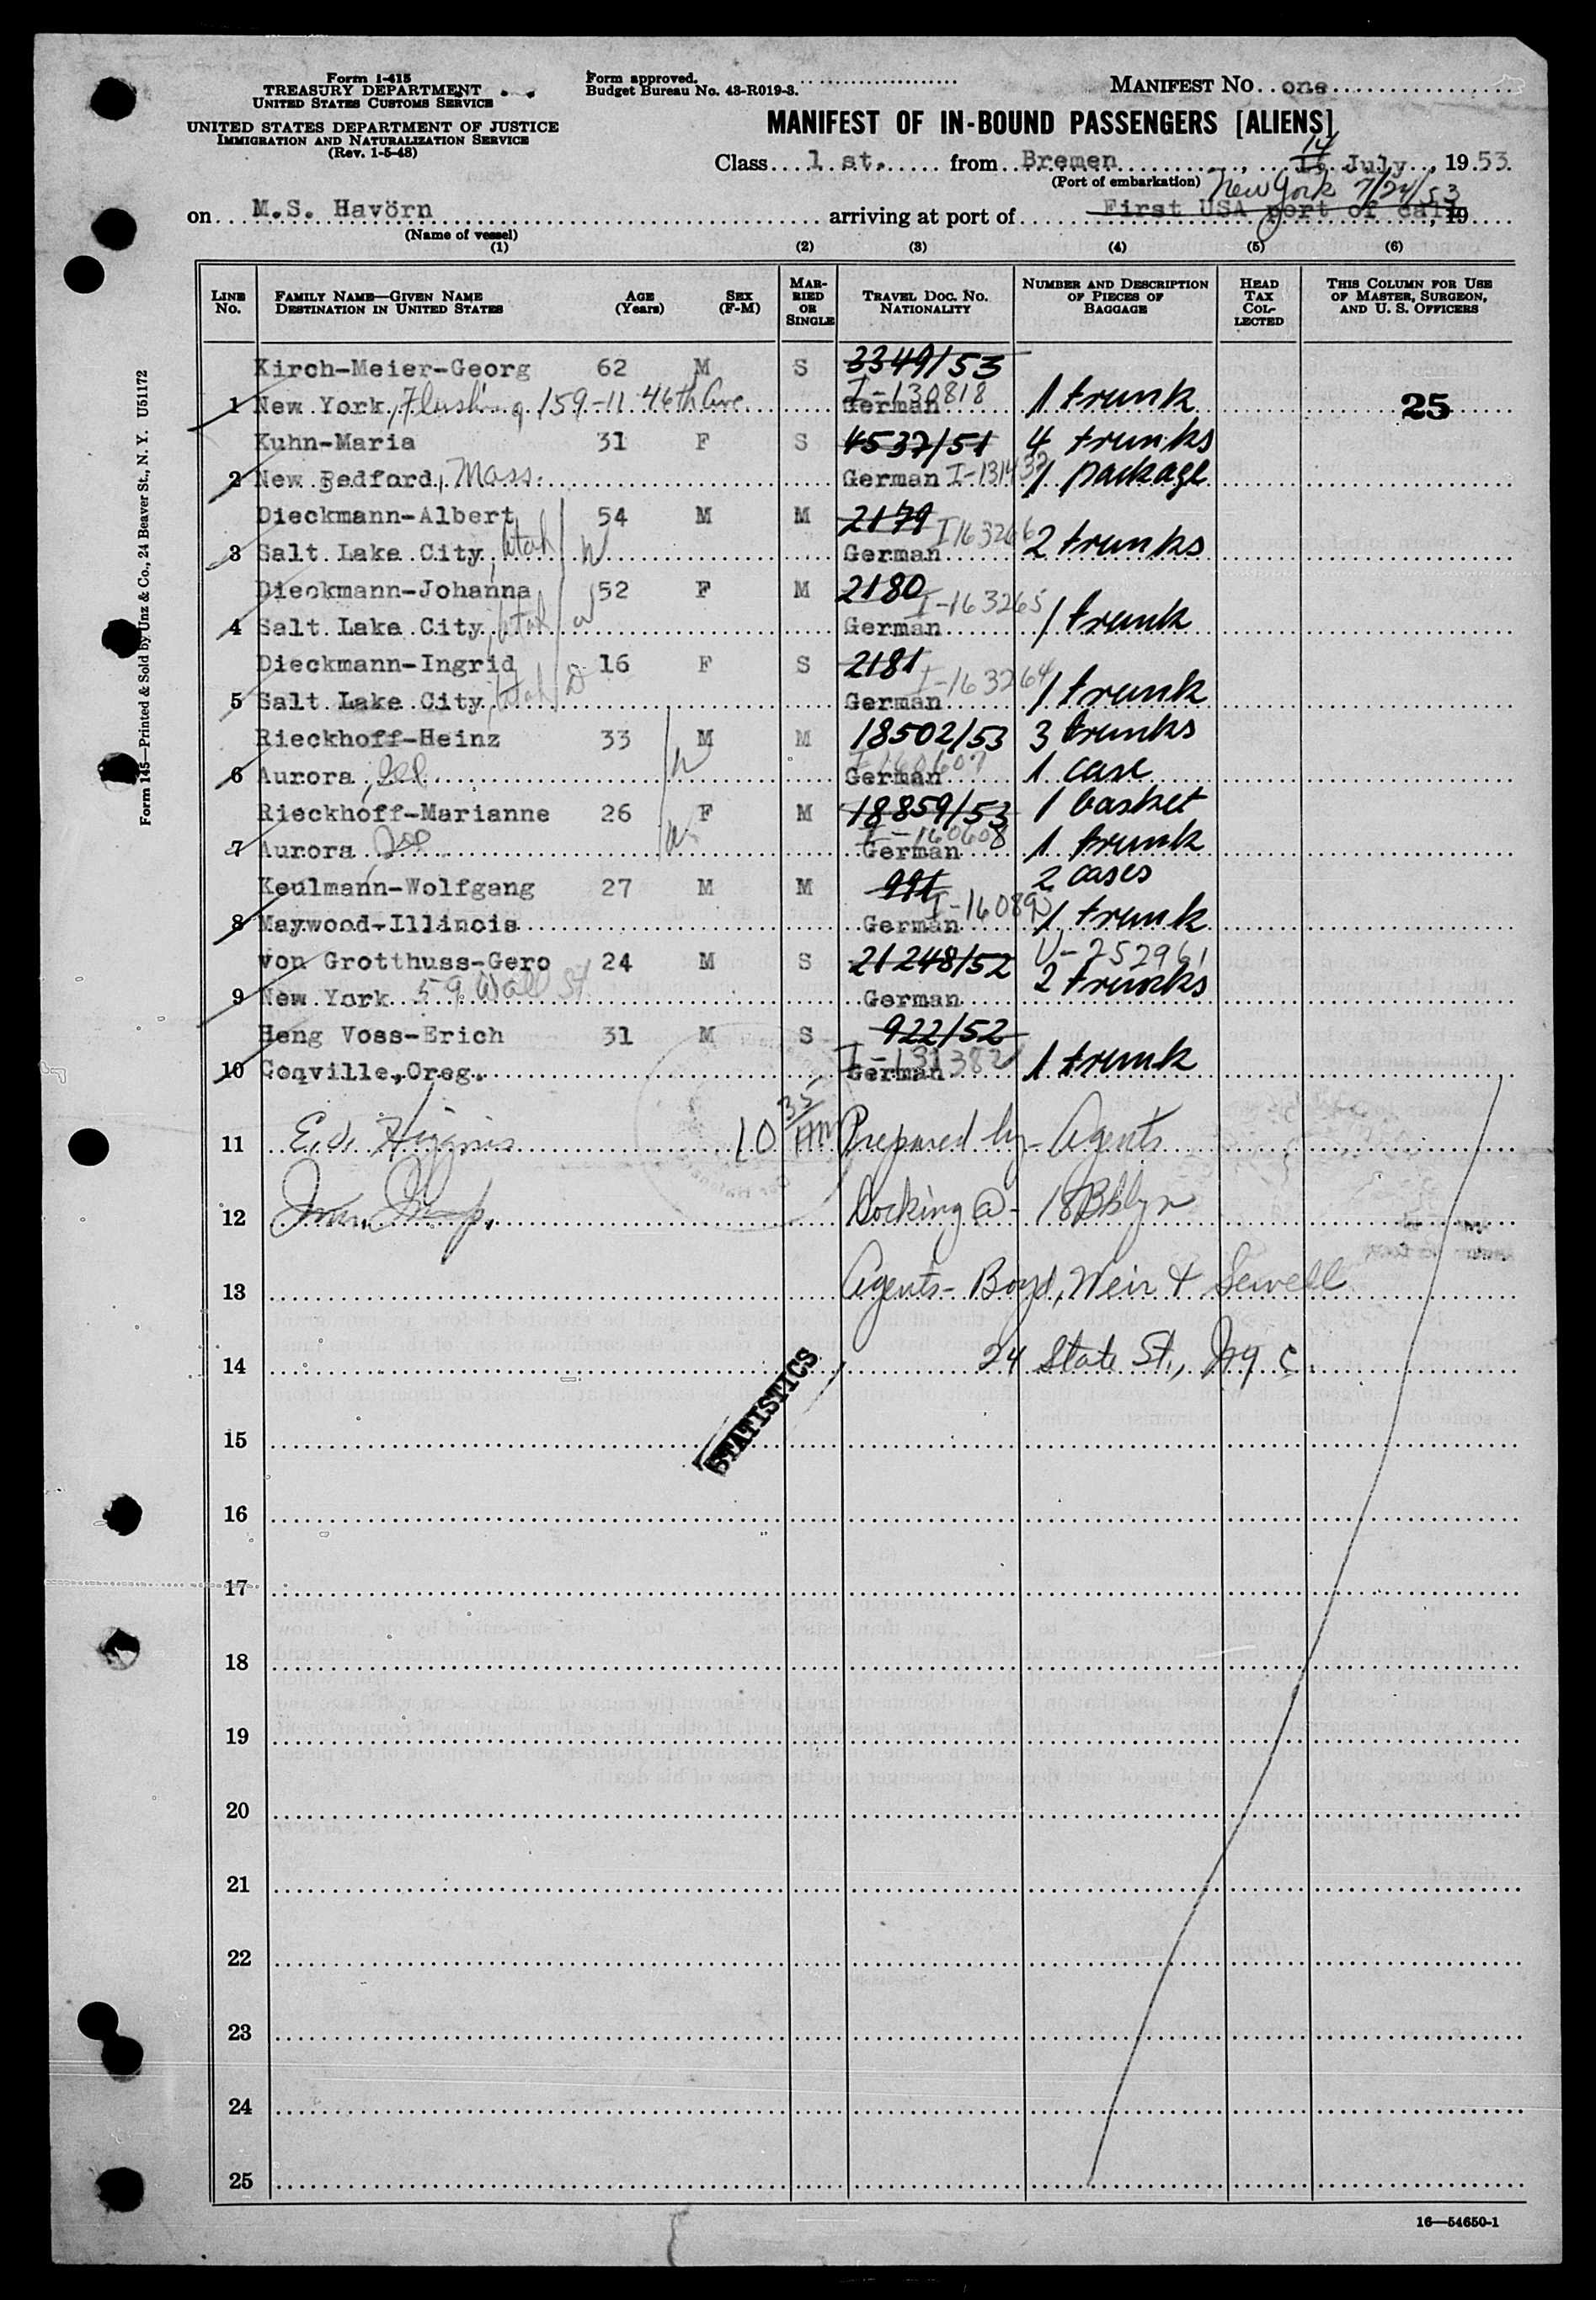 Form I-415
TREASURY DEPARTMENT
UNITED STATES CUSTOMS SERVICE
UNITED STATES DEPARTMENT OF JUSTICE
IMMIGRATION AND NATURALIZATION SERVICE
(Rev. 1-5-48)
Form approved.
Budget Bureau No. 43-R019-3.
MANIFEST NO. one
MANIFEST OF IN-BOUND PASSENGERS [ALIENS]
Class 1 st. from Bremen, 14 July, 1953
(Port of embarkation) New York 7/24/53
on M.S. Havörn arriving at port of First USA port of call, 19
(Name of vessel)
(1) (2) (3) (4) (5) (6)
LINE NO. FAMILY NAME—GIVEN NAME DESTINATION IN UNITED STATES AGE (Years) SEX (F-M) MARRIED OR SINGLE TRAVEL DOC. NO. NATIONALITY NUMBER AND DESCRIPTION OF PIECES OF BAGGAGE HEAD TAX COLLECTED THIS COLUMN FOR USE OF MASTER, SURGEON, AND U. S. OFFICERS
Kirch-Meier-Georg 62 M S 3349/53
1 New York, Flushing 159-11 46th Ave I-130818 German 1 trunk 25
Kuhn-Maria 31 F S 4537/51 4 trunks
2 New Bedford, Mass. German I-131432 1 package
Dieckmann-Albert 54 M M 2179
3 Salt Lake City, Utah German I163266 2 trunks
Dieckmann-Johanna 52 F M 2180
4 Salt Lake City, Utah W German I-163265 1 trunk
Dieckmann-Ingrid 16 F S 2181
5 Salt Lake City, Utah D German I-163264 1 trunk
Rieckhoff-Heinz 33 M M 18502/53 3 trunks
6 Aurora, Ill H German I160607 1 case
Rieckhoff-Marianne 26 F M 18859/53 1 basket
7 Aurora, Ill W German I-160608 1 trunk
Keulmann-Wolfgang 27 M M 991 2 cases
8 Maywood-Illinois German 1 trunk
von Grotthuss-Gero 24 M S 21248/52 V-252961
9 New York 59 Wall St German 2 trunks
Heng Voss-Erich 31 M S 922/52
10 Coqville, Oreg. German I-131382 1 trunk
11 10 35 AM Prepared by - Agents
12 Docking @ - 18 Bklyn
13 Agents - Boyd, Weir & Sewell
14 24 State St., NYC.
STATISTICS
15
16
17
18
19
20
21
22
23
24
25
16—54650-1
Form 145—Printed & Sold by Unz & Co., 24 Beaver St., N. Y. U51172